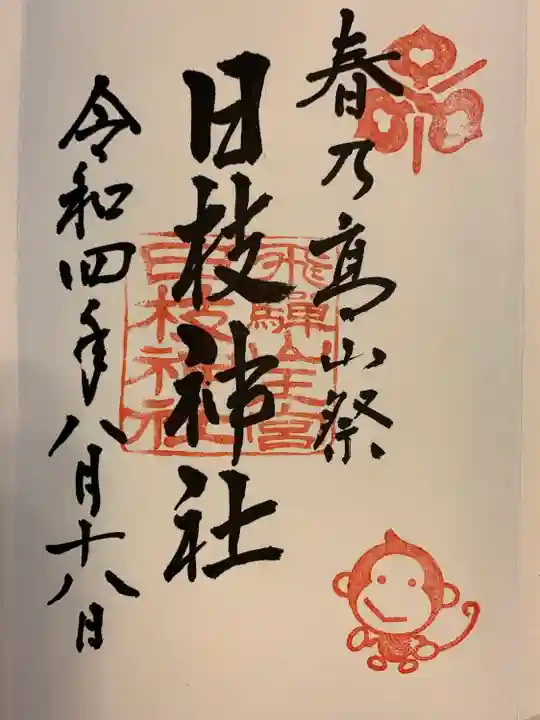 春乃高山祭
日枝神社
飛騨山王宮
日枝神社
令和四年八月十八日